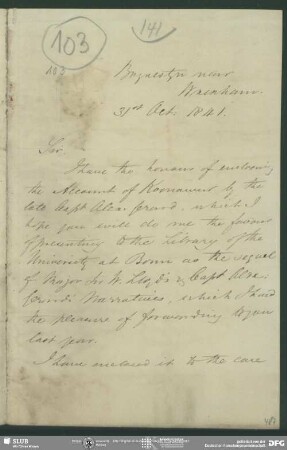 103
141
103
Brynestyn near
Wrexham.
31st Oct. 1841.
Sir
I have the honour of enclosing
the Account of Koonawur by the
late Capt Alexr. Gerard, which I
hope you will do me the favour
of presenting to the Library of the
University at Bonn as the sequel
of Major Sir W. Lloyd's & Capt Alexr.
Gerard's Narratives, which I had
the pleasure of forwarding to you
last year.
I have enclosed it to the care
SLUB
DFG